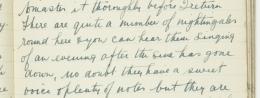 to master it thoroughly before I return
There are quite a number of nightingales
round here & you can hear them singing
of an evening after the sun has gone
down, no doubt they have a sweet
voice & plenty of notes but they are